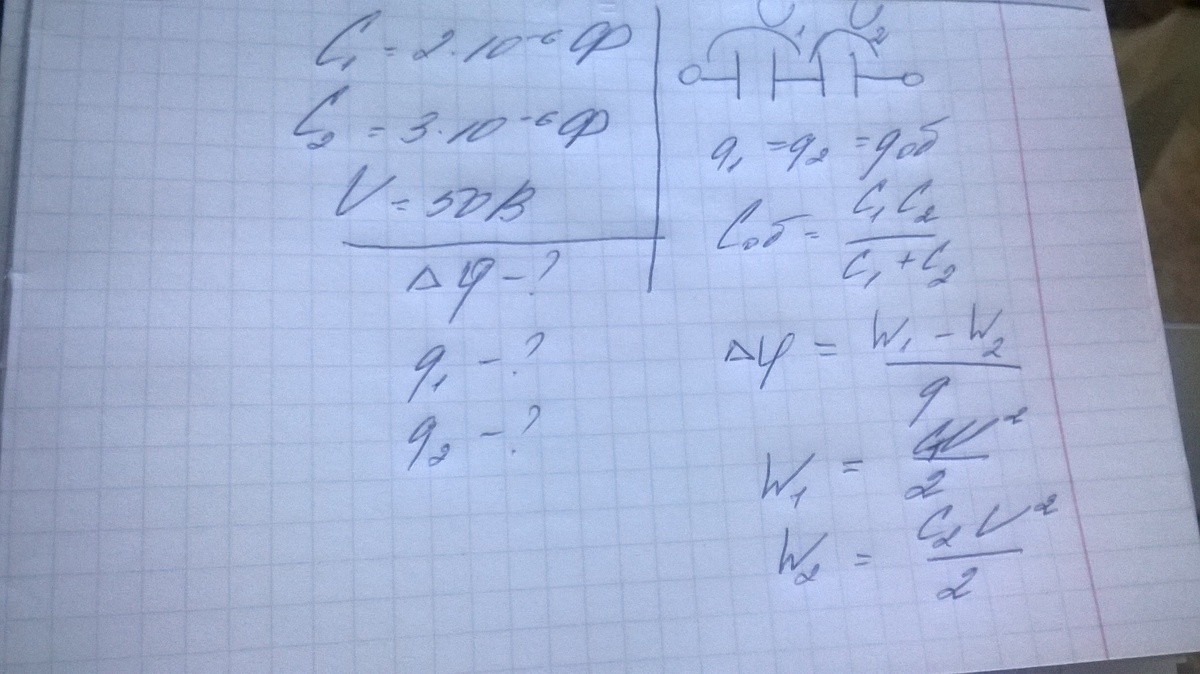 C₁ = 2·10⁻⁶ Ф
C₂ = 3·10⁻⁶ Ф
U = 50 В
Δφ - ?
q₁ - ?
q₂ - ?
U₁ U₂
q₁ = q₂ = qоб
Cоб = C₁ C₂ / C₁ + C₂
Δφ = W₁ - W₂ / q
W₁ = C₁U² / 2
W₂ = C₂ U² / 2